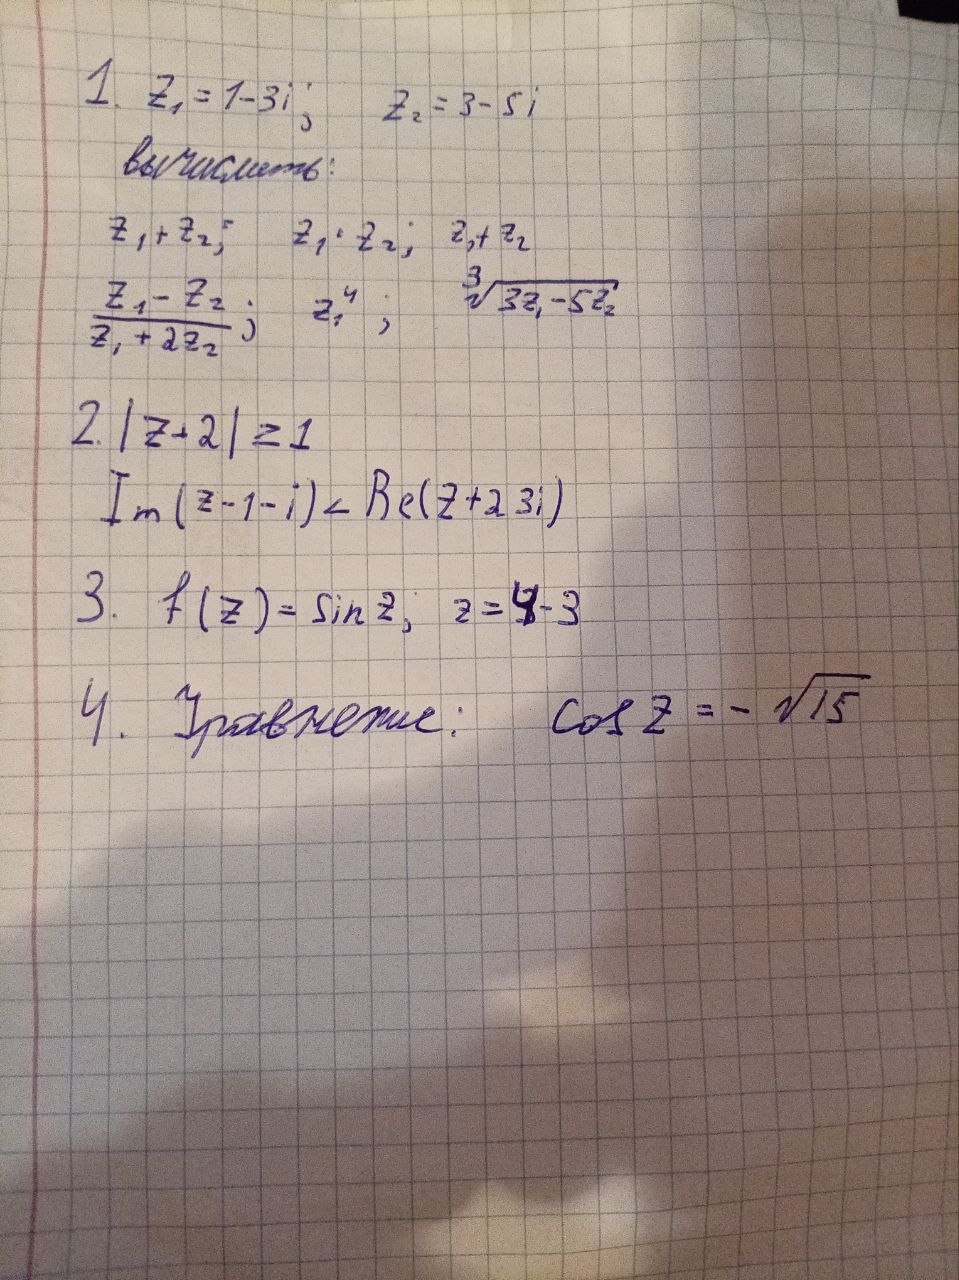 1. z₁ = 1-3i; z₂ = 3-5i
вычислить:
z₁+z₂; z₁·z₂; z₁+z₂
(z₁-z₂)/(z₁+2z₂); z₁⁴; ∛(3z₁-5z₂)
2. |z+2| ≥ 1
Im(z-1-i) < Re(z+23i)
3. f(z) = sin z; z = 4-3
4. Уравнение: cos z = -√15